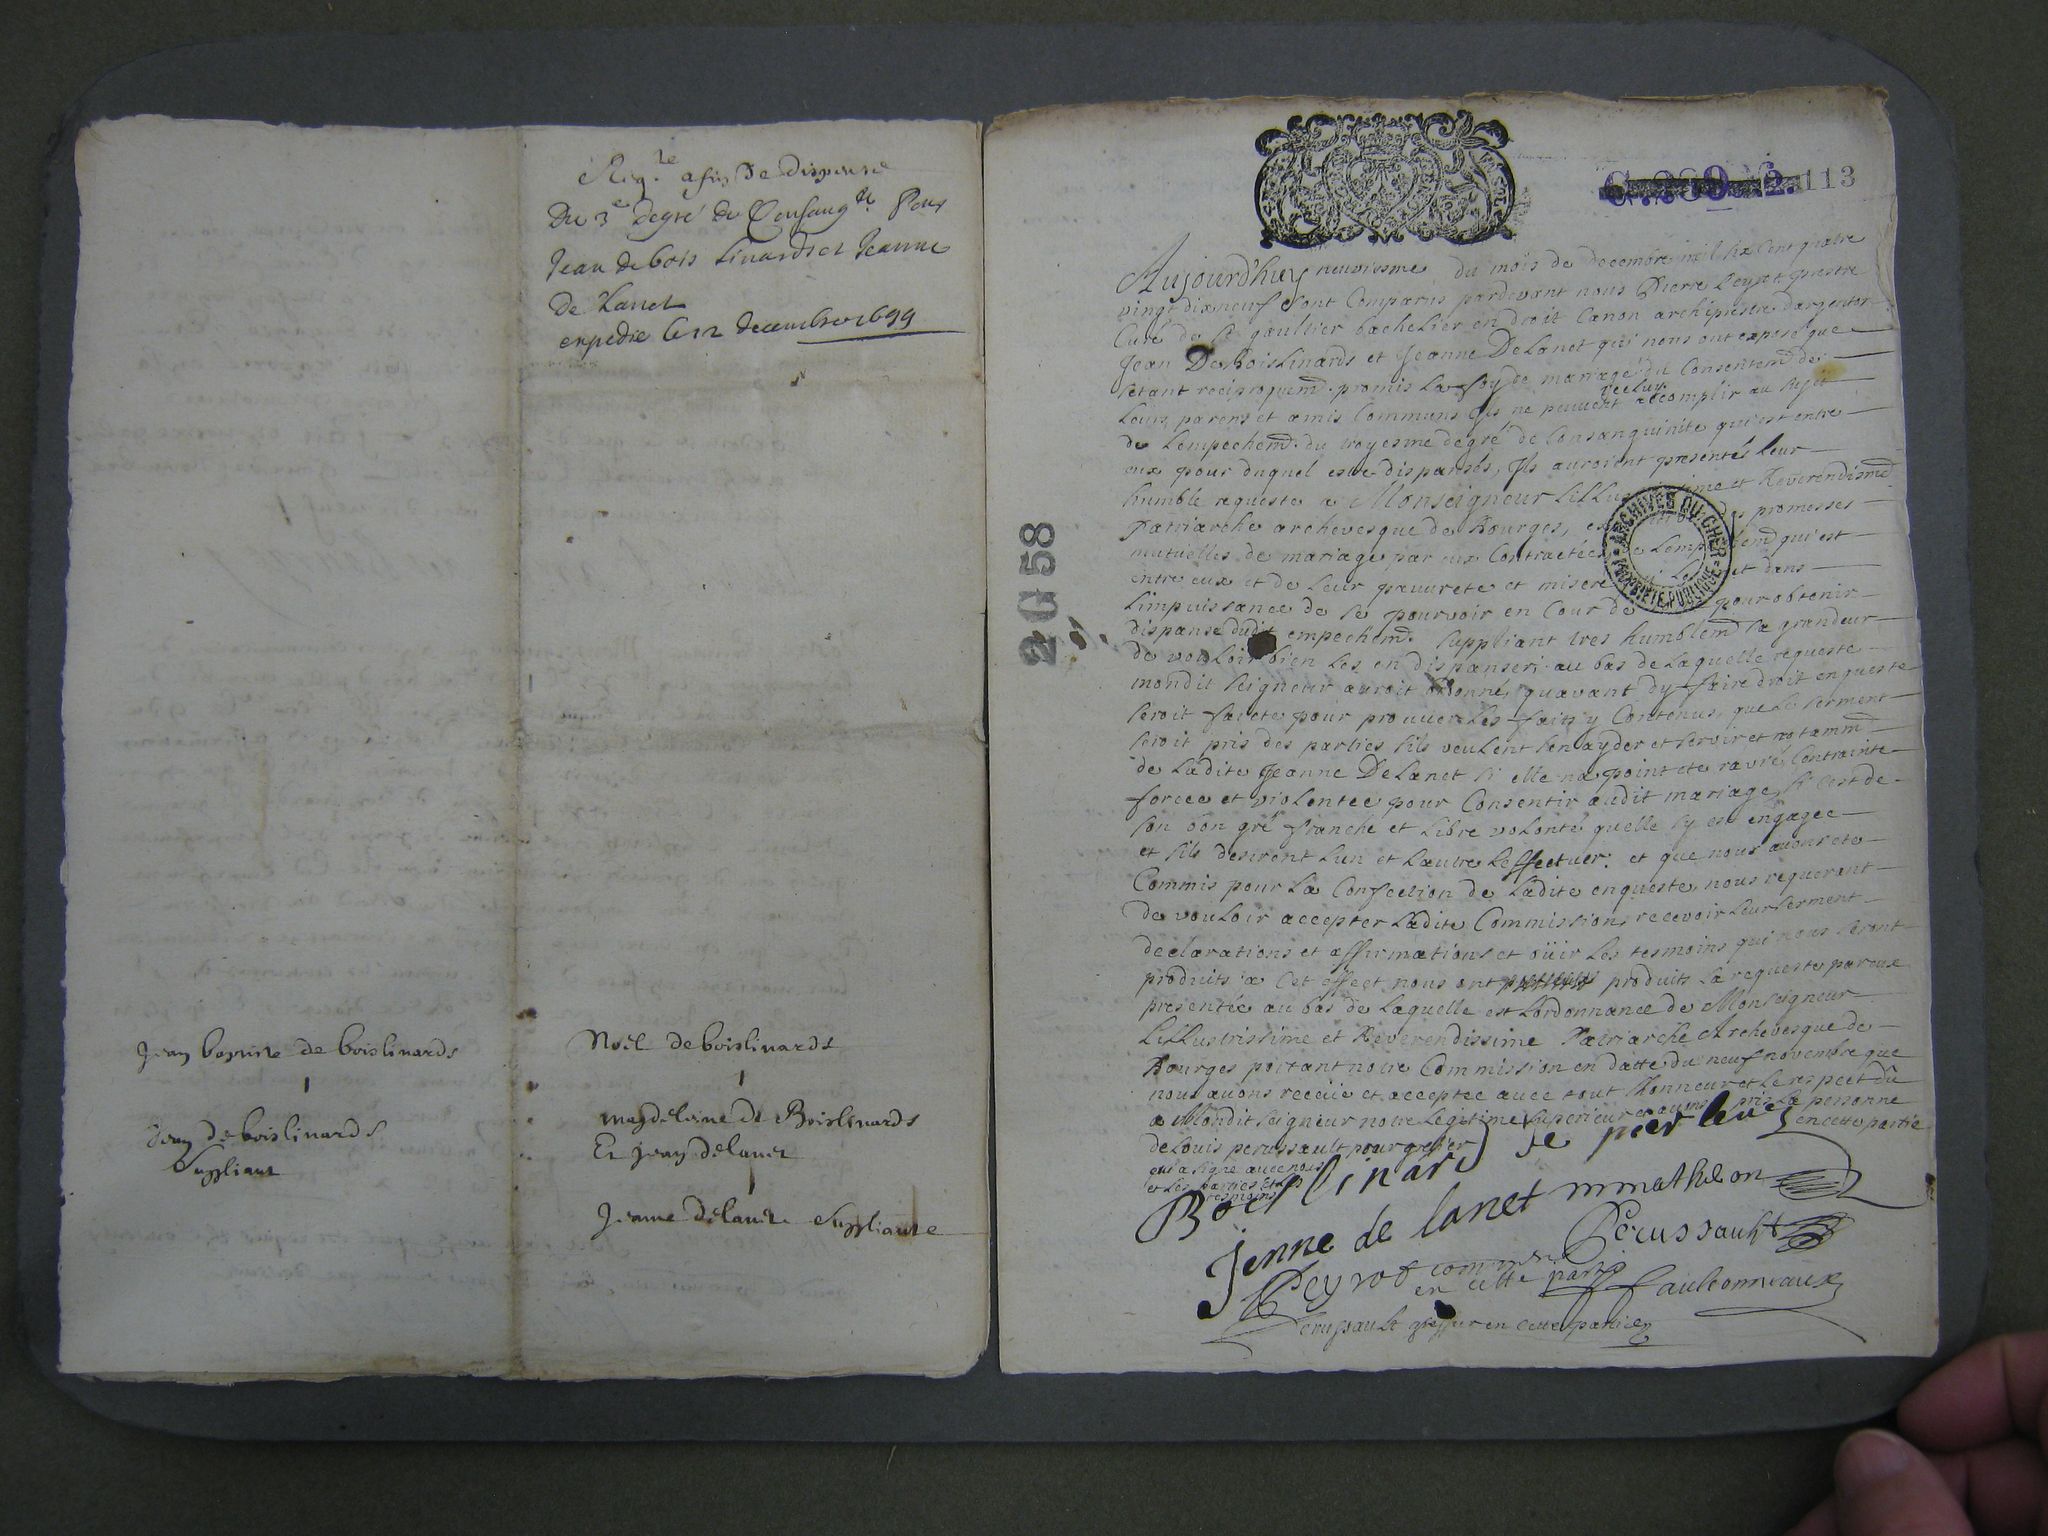 Req.te afin de dispense
Du 3e degré de Consang.té Pour
Jean de bois linards et Jeanne
de Lanet
expedie le 12 decembre 1699
Jean baptiste de boislinards
Jean de boislinards
Suppliant
Noel de boislinards
magdelaine de Boislinards
Et jean delanet
Jeanne delanet Suppliante
2 G 58
113
Aujourd'huy neuviesme du mois de decembre mil six cent quatre
vingt dixneuf sont Comparus pardevant nous Pierre Peyrot prestre
Curé de St gaultier bachelier en droit Canon archiprestre dargenton
Jean De Boislinards et Jeanne DeLanet qui nous ont exposé que
setant reciproquemt promis la foy de mariage du Consentemt de
leurs parens et amis Communs Ils ne peuvent Jceluy accomplir au sujet
de Lempechemt du troyesme degré de Consanguinite qui est entre
eux pour duquel estre dispansés, Ils auroient presentés leur
humble requeste a Monseigneur LiLLustrissime et Reverendissme
Patriarche archevesque de Bourges, promesses
mutuelles de mariage par eux Contractées de Lempechemt qui est
entre eux et de leur pauvrete et misere qui Les met dans
Limpuissance de se pourvoir en Cour de pour obtenir
dispanse dudit empechemt. suppliant tres humblemt sa grandeur
de vouloir bien les en dispanser. au bas de Laquelle requeste
mondit seigneur auroit ordonné, quavant dy faire droit enqueste
seroit faicte pour prouver les faits y Contenus, que le serment
seroit pris des parties sils veulent sen ayder et servir et notammt
de Ladite Jeanne DeLanet si elle na point ete ravie Contrainte
forcee et violentee pour Consentir audit mariage, si cest de
son bon gré franche et Libre volonté quelle sy est engagee
et sils desirent Lun et Lautre Leffectuer. et que nous avons ete
Commis pour La Confection de Ladite enqueste, nous requerant
de vouloir accepter Ladite Commission, recevoir leur serment
declarations et affirmations et oüir les tesmoins qui nous seront
produits a Cet effect nous ont produits La requeste par eux
presentée au bas de Laquelle est Lordonnance de Monseigneur
LiLLustrissime et Reverendissime Patriarche Archevesque de
Bourges portant notre Commission en datte du neuf novembre que
nous avons receüe et acceptee avec tout Lhonneur et le respect dû
a Mondit seigneur notre Legitime superieur et avons pris La personne
de Louis perussault pour greffier en cette partie
qui a signe avec nous
et Les parties et Les
tesmoins
Boislinard
Jenne de lanet mmatheon
Perussault
Peyrot commre
en cette partie faulconneaux
Perussault greffier en cette partie
ARCHIVES DU CHER
PROPRIÉTÉ PUBLIQUE